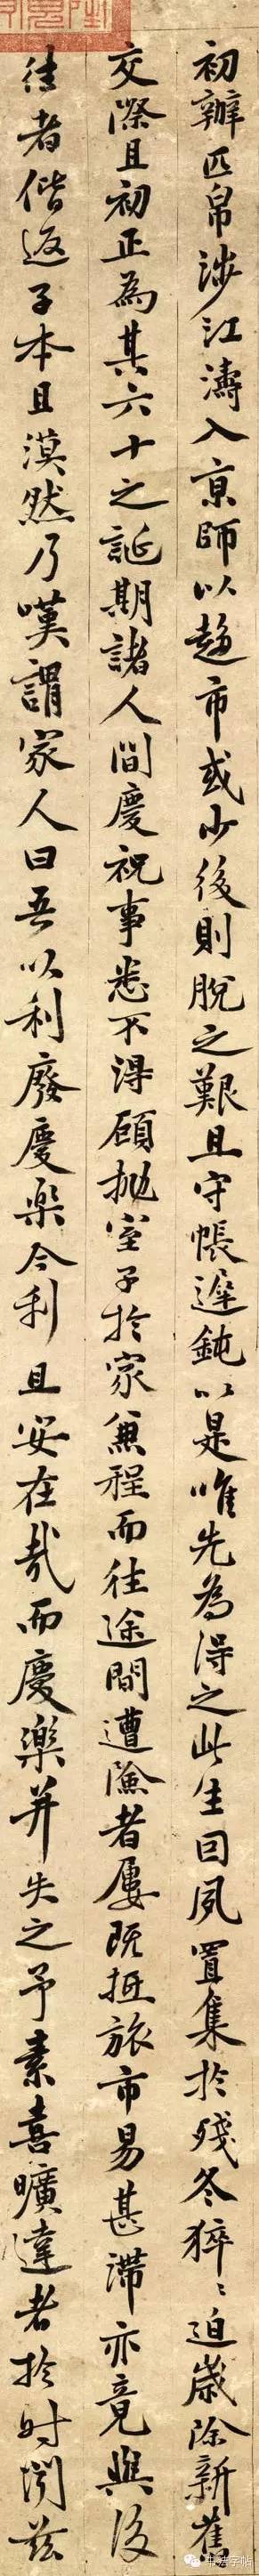 初辦匹帛涉江濤入京師以趨市或少後則脫之艱且守帳遲鈍以是唯先為得之此生回夙置集於殘冬猝〻迫歲除新舊
交際且初正為其六十之誕期諸人間慶祝事悉不得顧拋室子於家兼程而往途間遭險者屢既抵旅市易甚滯亦竟與後
往者偕返子本且漠然乃嘆謂家人曰吾以利廢慶樂今利且安在哉而慶樂并失之予素喜曠達者於時閒茲